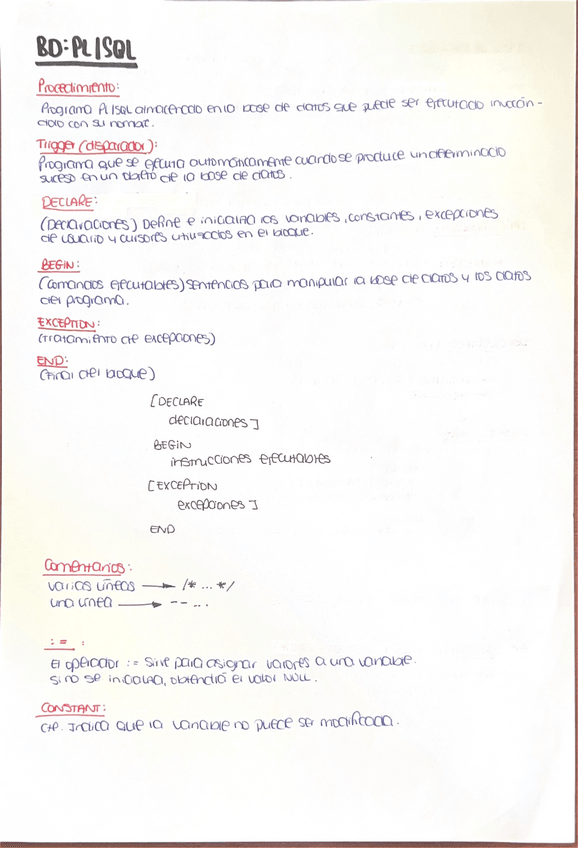 BD: PL|SQL
Procedimiento:
Programa PL|SQL almacenado en la base de datos que puede ser ejecutado invocán-
dolo con su nombre.
Trigger (disparador):
Programa que se ejecuta automáticamente cuando se produce un determinado
suceso en un objeto de la base de datos.
DECLARE:
(Declaraciones) Define e inicializa las variables, constantes, excepciones
de usuario y cursores utilizados en el bloque.
BEGIN:
(Comandos ejecutables) Sentencias para manipular la base de datos y los datos
del programa.
EXCEPTION:
(Tratamiento de excepciones)
END:
(Final del bloque)
[DECLARE
declaraciones]
BEGIN
instrucciones ejecutables
[EXCEPTION
excepciones]
END
Comentarios:
varias líneas → /* ... */
una línea → -- ...
:= :
El operador := Sirve para asignar valores a una variable.
Si no se inicializa, obtendrá el valor NULL.
CONSTANT:
Indica que la variable no puede ser modificada.